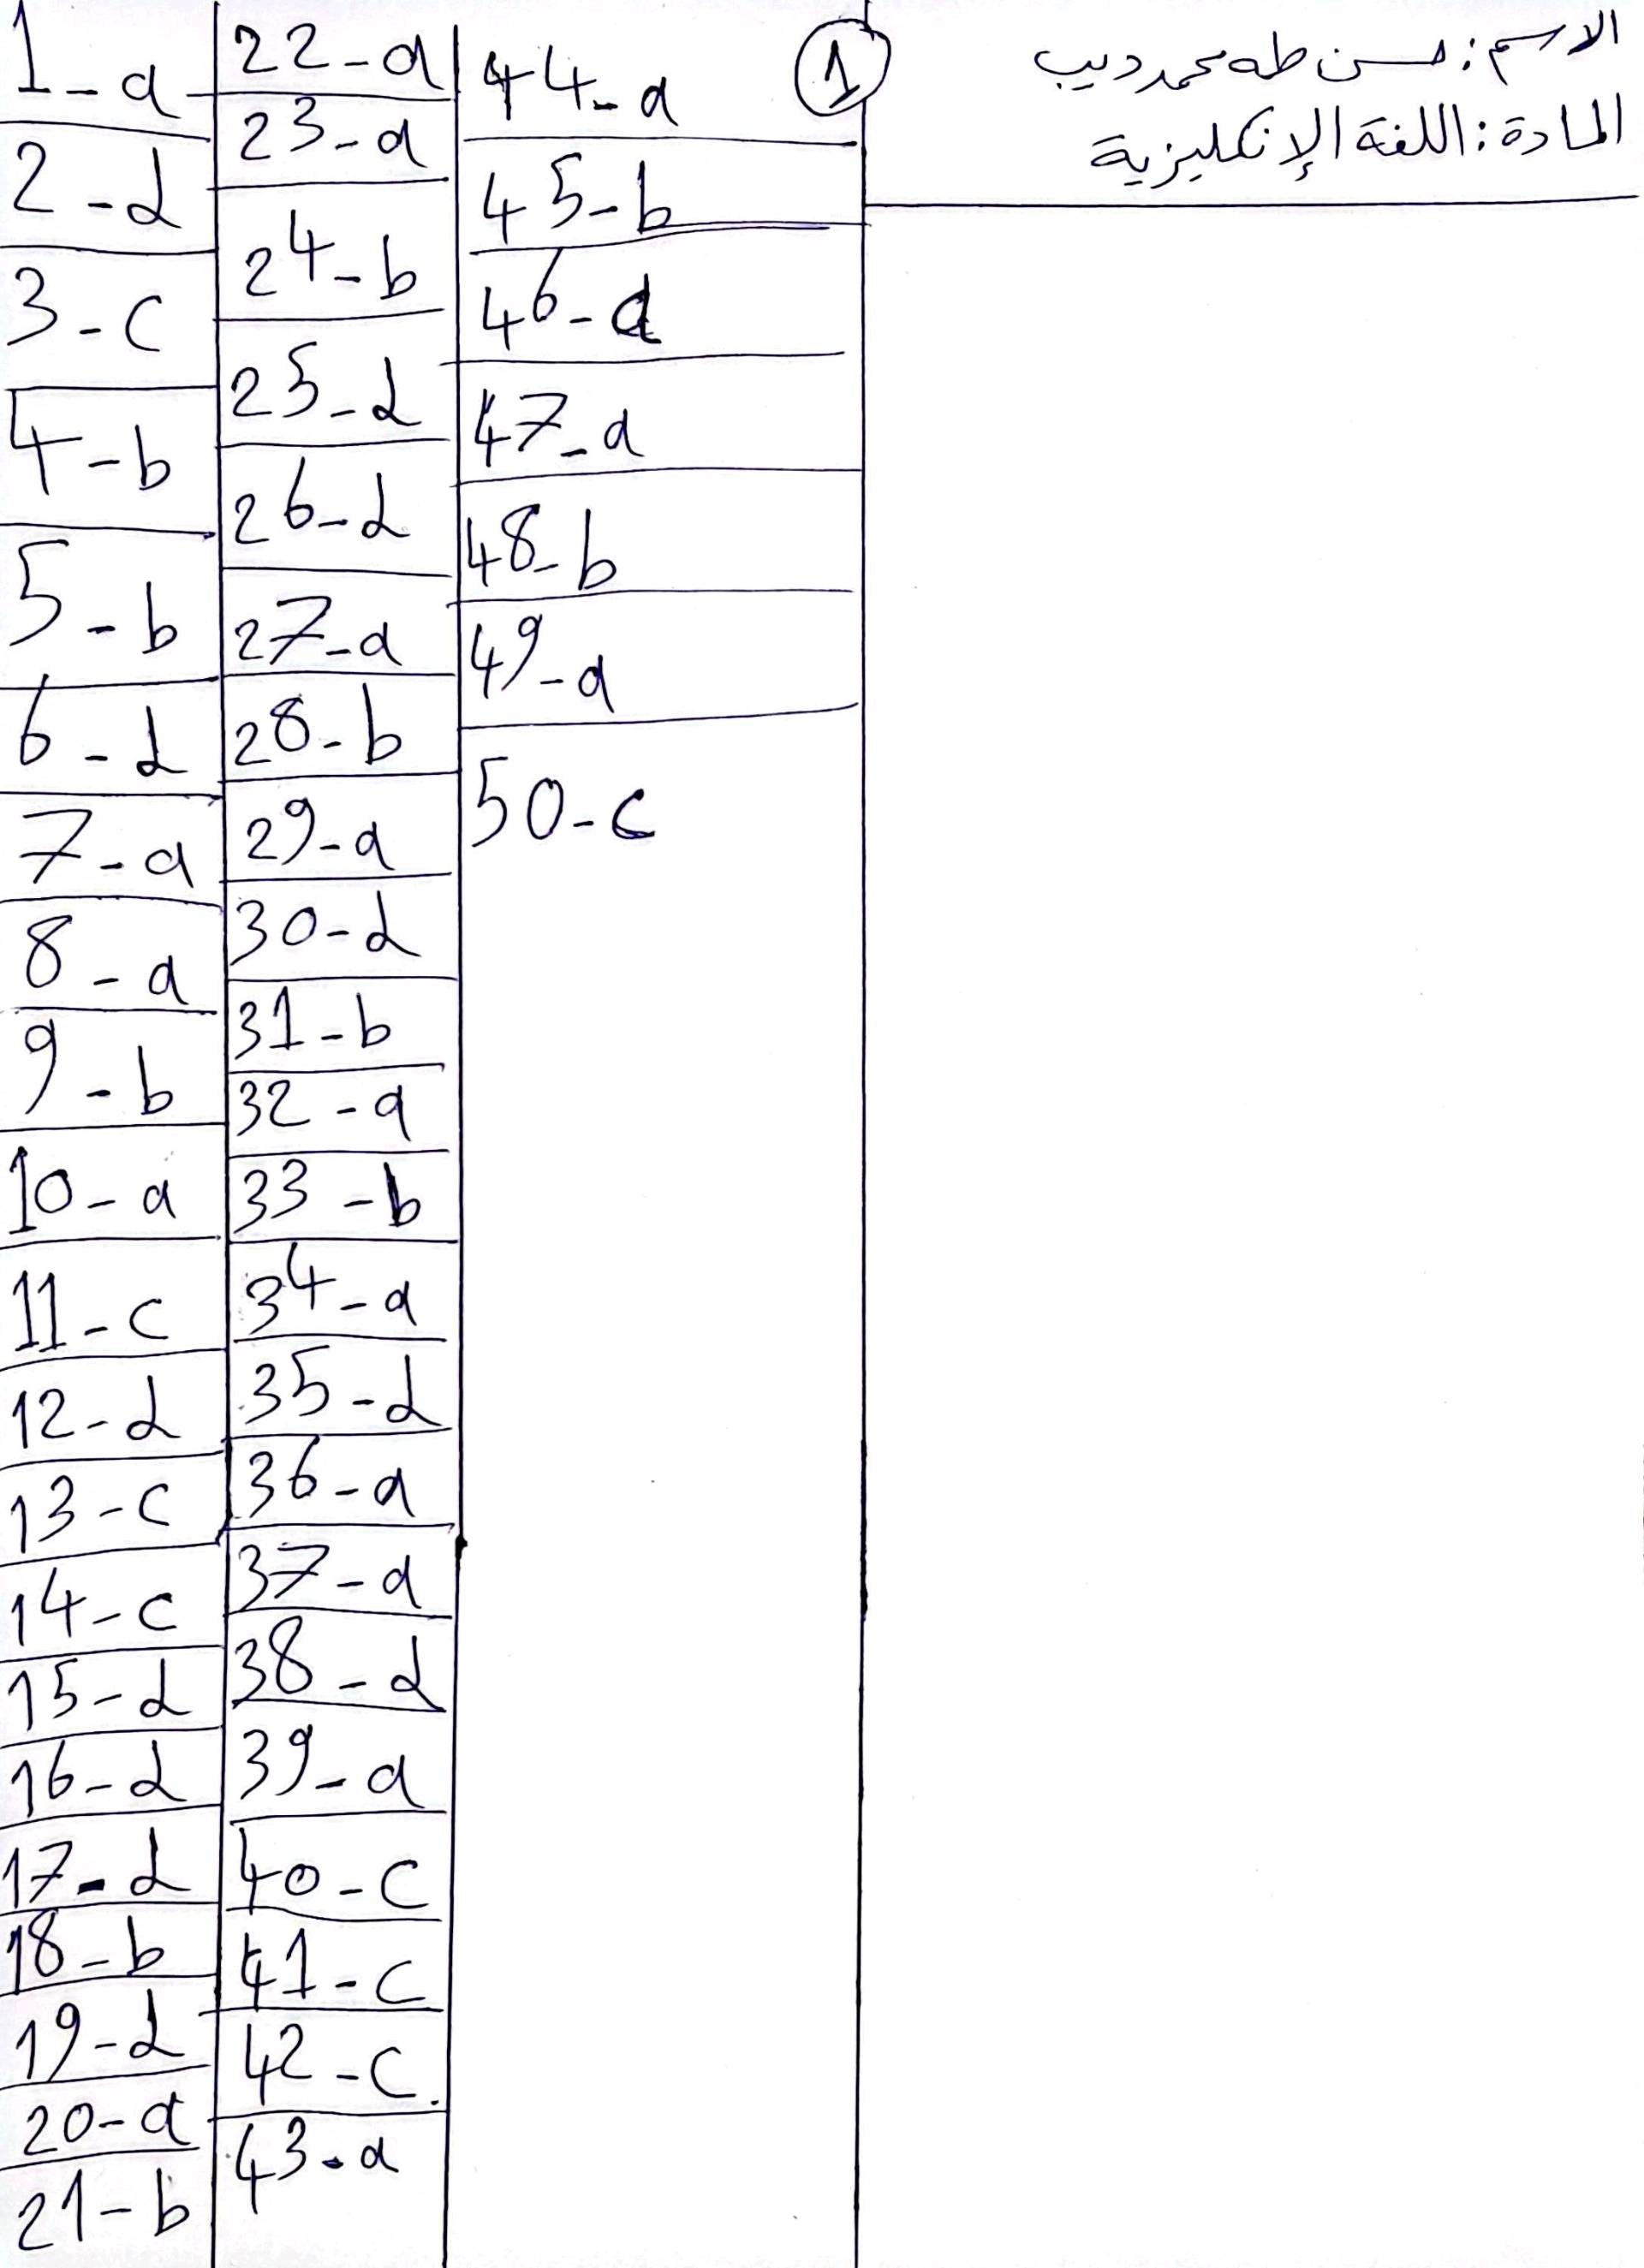 الاسم: حسن طه محمد ديب
المادة: اللغة الإنكليزية
1
1-a
2-d
3-c
4-b
5-b
6-d
7-a
8-a
9-b
10-a
11-c
12-d
13-c
14-c
15-d
16-d
17-d
18-b
19-d
20-a
21-b
22-a
23-a
24-b
25-d
26-d
27-a
28-b
29-a
30-d
31-b
32-a
33-b
34-a
35-d
36-a
37-a
38-d
39-a
40-c
41-c
42-c
43-a
44-a
45-b
46-d
47-a
48-b
49-a
50-c